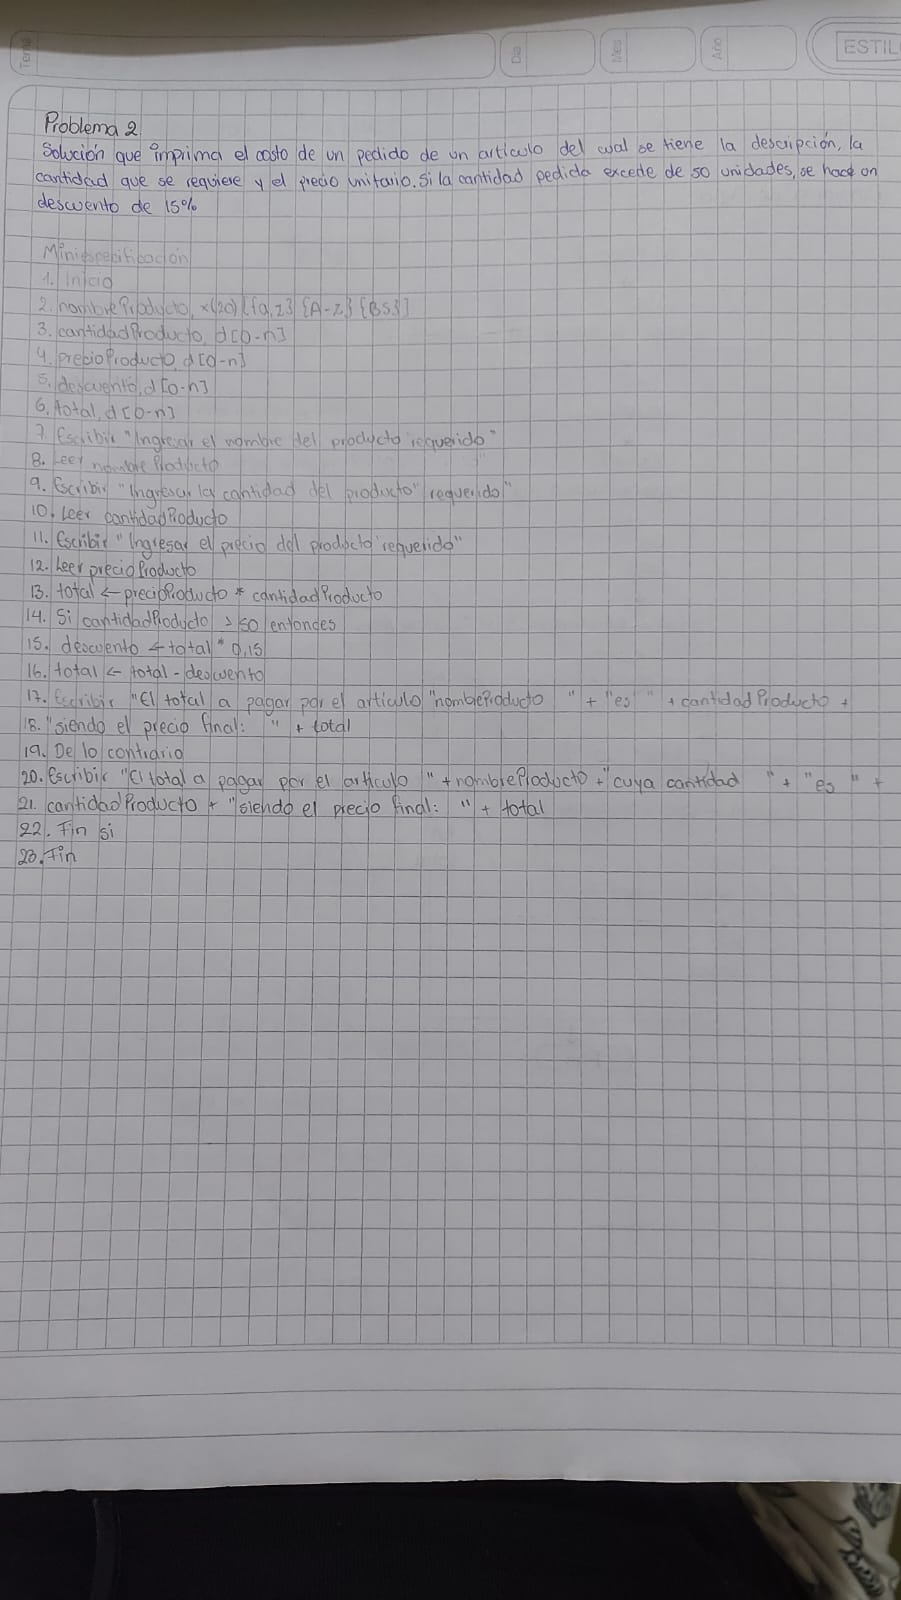 Tema
Día
Mes
Año
ESTIL
Problema 2
Solución que imprima el costo de un pedido de un artículo del cual se tiene la descripción, la
cantidad que se requiere y el precio unitario. Si la cantidad pedida excede de 50 unidades, se hace un
descuento de 15%
Miniespecificación
1. Inicio
2. nombreProducto, x(20) [{a,z} {A-Z} {BS}]
3. cantidadProducto, d[0-n]
4. precioProducto, d[0-n]
5. descuento, d[0-n]
6. total, d[0-n]
7. Escribir "Ingresar el nombre del producto requerido"
8. Leer nombreProducto
9. Escribir "Ingresar la cantidad del producto" requerido"
10. Leer cantidadProducto
11. Escribir "Ingresar el precio del producto requerido"
12. Leer precioProducto
13. total ← precioProducto * cantidadProducto
14. Si cantidadProducto > 50 entonces
15. descuento ← total * 0,15
16. total ← total - descuento
17. Escribir "El total a pagar por el artículo "nombreProducto " + "es " + cantidadProducto +
18. "siendo el precio final: " + total
19. De lo contrario
20. Escribir "El total a pagar por el artículo " + nombreProducto + "cuya cantidad " + "es " +
21. cantidadProducto + "siendo el precio final: " + total
22. Fin si
23. Fin